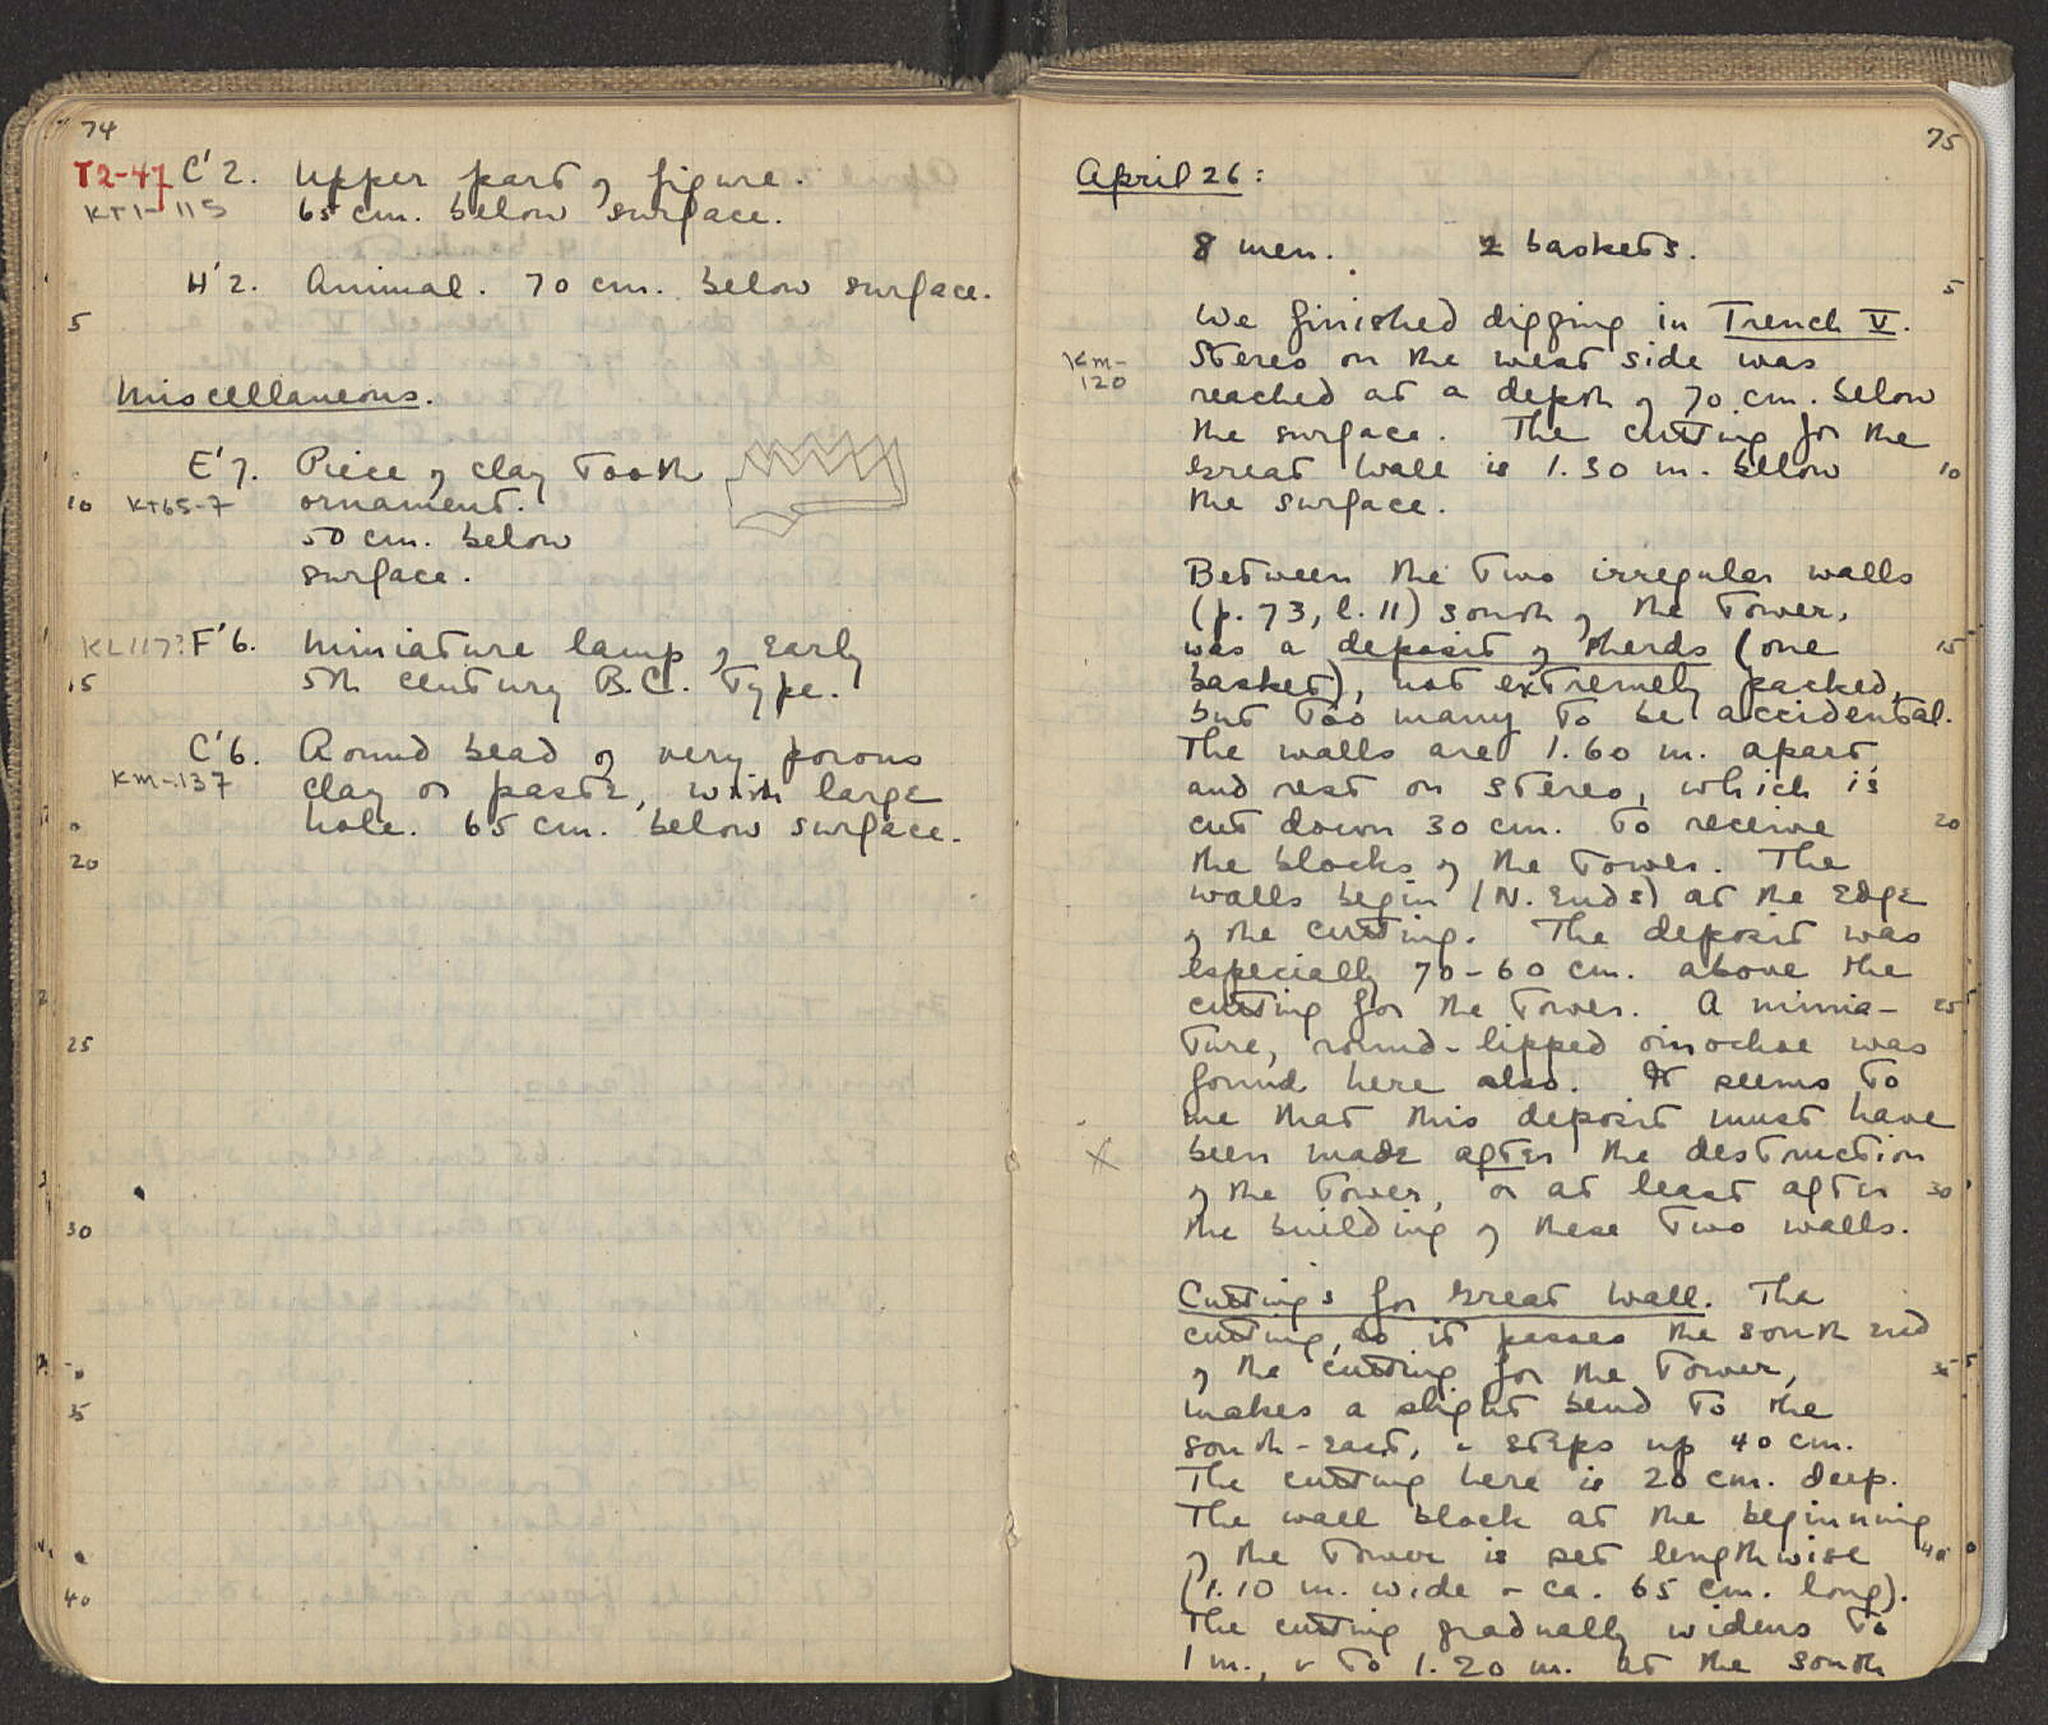 74
T2-47 C'2. Upper part of figure.
KT1-115 65 cm. below surface.
H'2. Animal. 70 cm. below surface.
5
Miscellaneous.
E'7. Piece of clay tooth
10 KT65-7 ornament.
50 cm. below
surface.
KL117? F'6. Miniature lamp of early
15 5th century B.C. type.
C'6. Round bead of very porous
KM-137 clay or paste, with large
hole. 65 cm. below surface.
20
25
30
35
40
75
April 26:
8 men. 2 baskets.
5
We finished digging in Trench V.
KM- Stereo on the west side was
120 reached at a depth of 70 cm. below
the surface. The cutting for the
Great Wall is 1.30 m. below 10
the surface.
Between the two irregular walls
(p. 73, l. 11) south of the Tower,
was a deposit of sherds (one 15
basket), not extremely packed,
but too many to be accidental.
The walls are 1.60 m. apart,
and rest on stereo, which is
cut down 30 cm. to receive 20
the blocks of the Tower. The
walls begin (N. ends) at the edge
of the cutting. The deposit was
especially 70-60 cm. above the
cutting for the Tower. A minia- 25
ture, round-lipped oinochoe was
found here also. It seems to
me that this deposit must have
X been made after the destruction
of the Tower, or at least after 30
the building of these two walls.
Cuttings for Great Wall. The
cutting, as it passes the south end
of the cutting for the Tower, 35
makes a slight bend to the
south-east, & steps up 40 cm.
The cutting here is 20 cm. deep.
The wall block at the beginning
of the Tower is set lengthwise 40
(1.10 m. wide & ca. 65 cm. long).
The cutting gradually widens to
1 m., & to 1.20 m. at the south